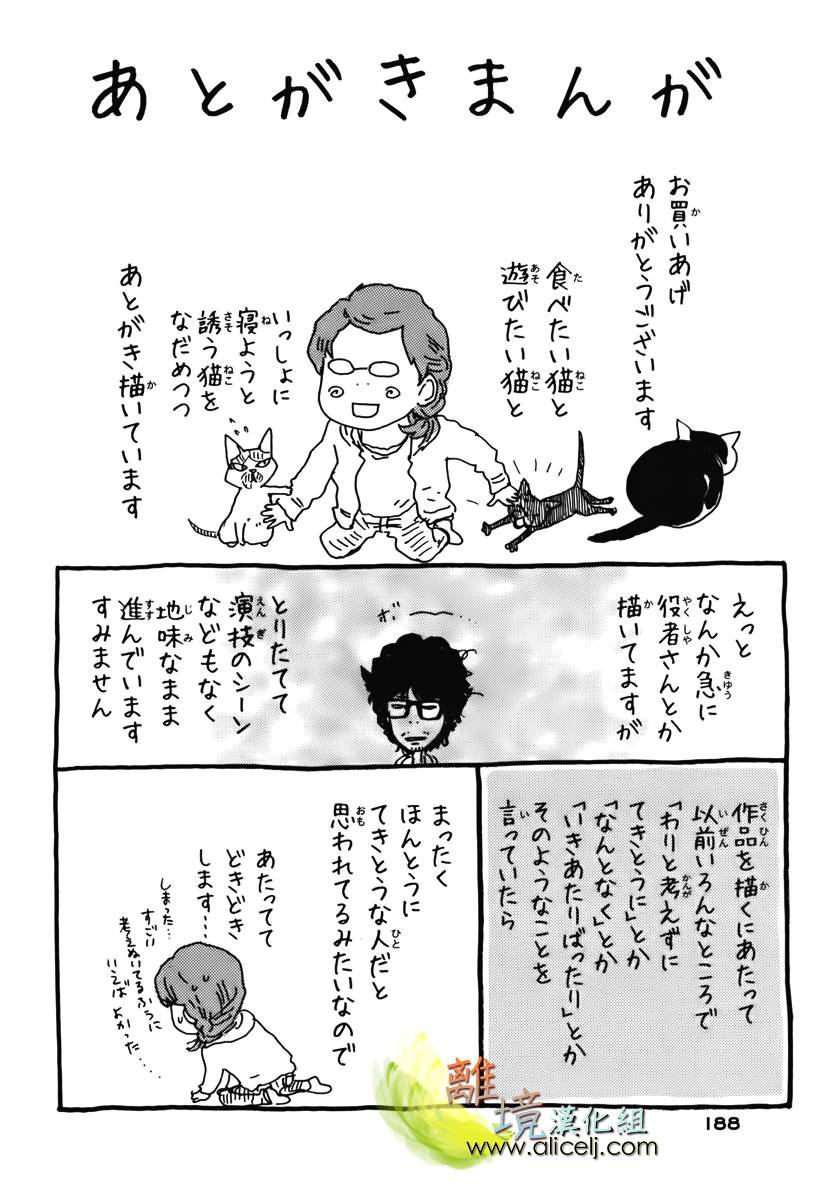 あとがきまんが
お買いあげ
ありがとうございます
食べたい猫と
遊びたい猫と
いっしょに
寝ようと
誘う猫を
なだめつつ
あとがき描いています
えっと
なんか急に
役者さんとか
描いてますが
ボー
とりたてて
演技のシーン
などもなく
地味なまま
進んでいます
すみません
作品を描くにあたって
以前いろんなところで
「わりと考えずに
てきとうに」とか
「なんとなく」とか
「いきあたりばったり」とか
そのようなことを
言っていたら
まったく
ほんとうに
てきとうな人だと
思われてるみたいなので
あたってて
どきどき
します…
しまった…
すごい
考えぬいてるふうに
いえば よかった…
離境漢化組
www.alicelj.com
188